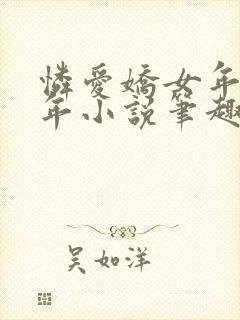 憐愛嬌女年
年小說筆趣
吴如洋